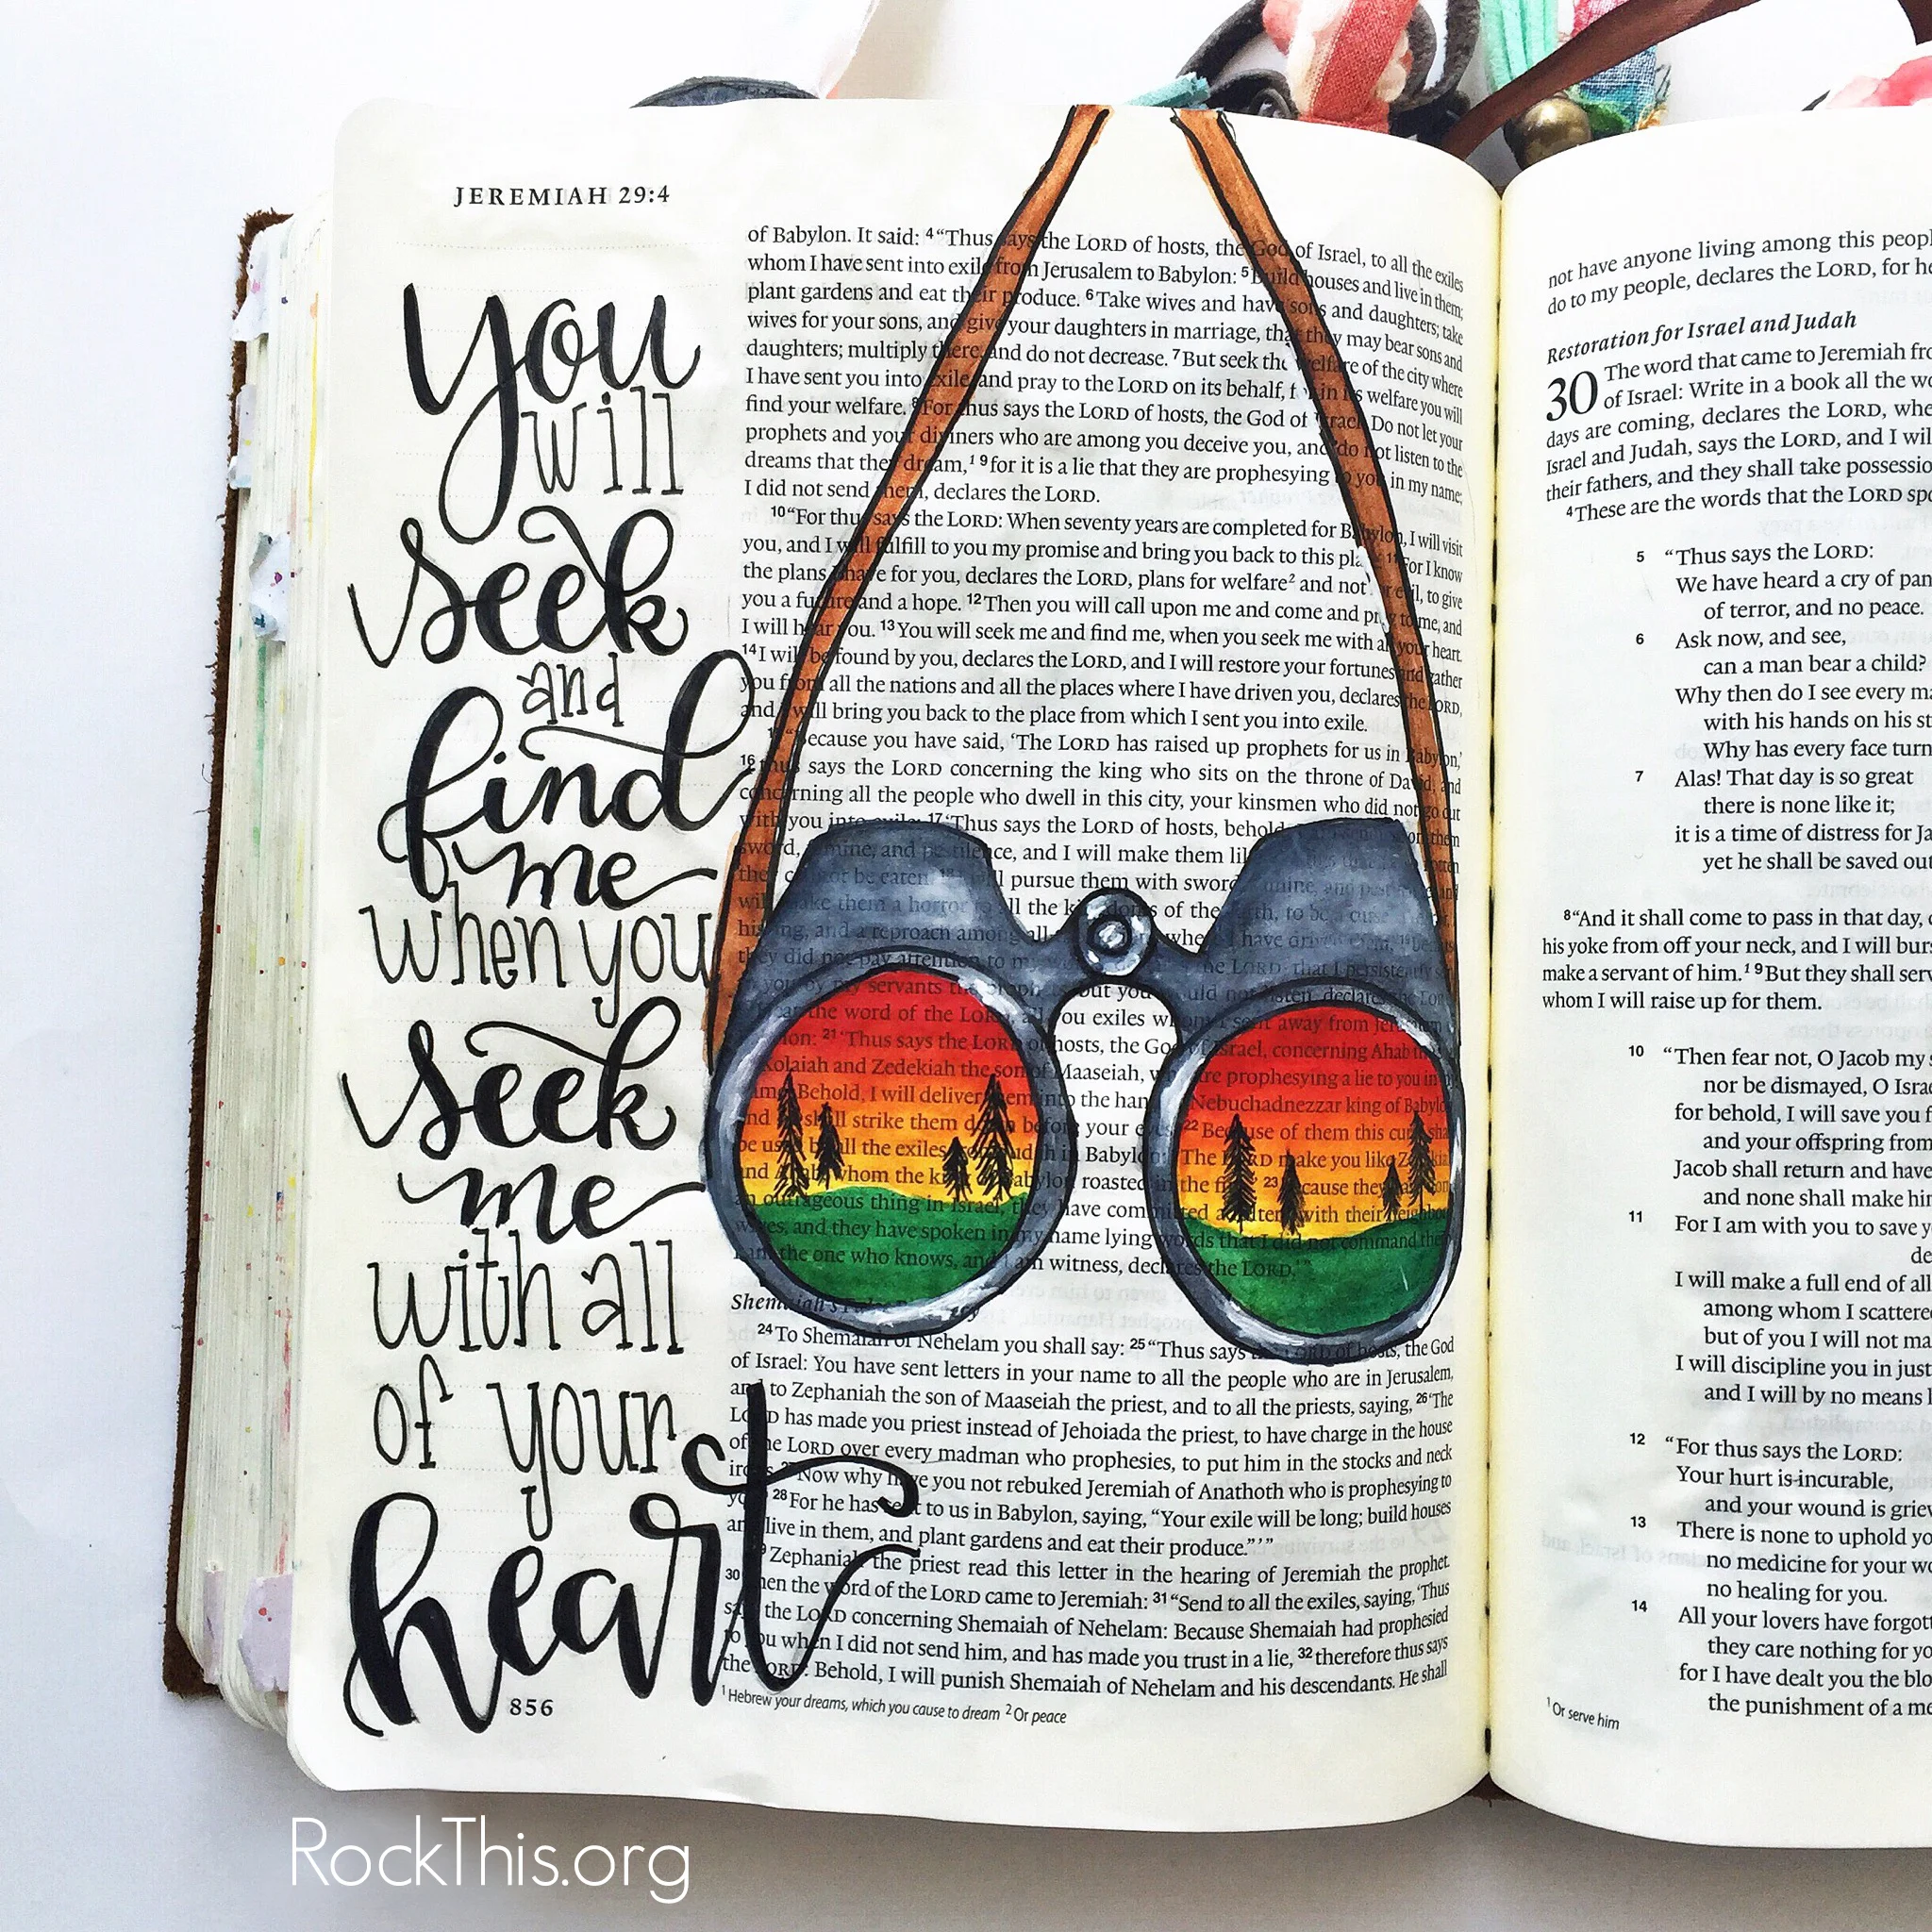 JEREMIAH 29:4
you
will
seek
and
find
me
when you
seek
me
with all
of your
heart
856
of Babylon. It said: 4“Thus says the LORD of hosts, the God of Israel, to all the exiles
whom I have sent into exile from Jerusalem to Babylon: 5Build houses and live in them;
plant gardens and eat their produce. 6Take wives and have sons and daughters; take
wives for your sons, and give your daughters in marriage, that they may bear sons and
daughters; multiply there, and do not decrease. 7But seek the welfare of the city where
I have sent you into exile, and pray to the LORD on its behalf, for in its welfare you will
find your welfare. 8For thus says the LORD of hosts, the God of Israel: Do not let your
prophets and your diviners who are among you deceive you, and do not listen to the
dreams that they dream,1 9for it is a lie that they are prophesying to you in my name;
I did not send them, declares the LORD.
10“For thus says the LORD: When seventy years are completed for Babylon, I will visit
you, and I will fulfill to you my promise and bring you back to this place. 11For I know
the plans I have for you, declares the LORD, plans for welfare2 and not for evil, to give
you a future and a hope. 12Then you will call upon me and come and pray to me, and
I will hear you. 13You will seek me and find me, when you seek me with all your heart.
14I will be found by you, declares the LORD, and I will restore your fortunes and gather
you from all the nations and all the places where I have driven you, declares the LORD,
and I will bring you back to the place from which I sent you into exile.
“Because you have said, ‘The LORD has raised up prophets for us in Babylon,’
16thus says the LORD concerning the king who sits on the throne of David, and
concerning all the people who dwell in this city, your kinsmen who did not go out
with you into exile: 17‘Thus says the LORD of hosts, behold, them
sword, famine, and pestilence, and I will make them like
they cannot be eaten. I will pursue them with sword, famine, and pestilence, and
will make them a horror to all the kingdoms of the earth, to be a curse,
hissing, and a reproach among all where I have driven them,
they did not pay attention to my the LORD, that I persistently
to you by my servants the prophets, but you would not listen, declares the LORD.
Hear the word of the LORD, all you exiles whom I sent away from Jerusalem
21‘Thus says the LORD of hosts, the God of Israel, concerning Ahab
Kolaiah and Zedekiah the son of Maaseiah, who are prophesying a lie to you in my
name: Behold, I will deliver them into the hand Nebuchadnezzar king of Babylon,
and he shall strike them down before your eyes. 22Because of them this curse shall
be used by all the exiles from Judah in Babylon: “The LORD make you like Zedekiah
and Ahab, whom the king of Babylon roasted in the fire,” 23because they
an outrageous thing in Israel, they have committed adultery with their neighbors’
wives, and they have spoken in my name lying words that I did not command them.
I am the one who knows, and I am witness, declares the LORD.’”
Shemaiah’s False Prophecy
24To Shemaiah of Nehelam you shall say: 25“Thus says the LORD of hosts, the God
of Israel: You have sent letters in your name to all the people who are in Jerusalem,
and to Zephaniah the son of Maaseiah the priest, and to all the priests, saying, 26‘The
LORD has made you priest instead of Jehoiada the priest, to have charge in the house
of the LORD over every madman who prophesies, to put him in the stocks and neck
irons. 27Now why have you not rebuked Jeremiah of Anathoth who is prophesying to
you? 28For he has sent to us in Babylon, saying, “Your exile will be long; build houses
and live in them, and plant gardens and eat their produce.”’”
29Zephaniah the priest read this letter in the hearing of Jeremiah the prophet.
30Then the word of the LORD came to Jeremiah: 31“Send to all the exiles, saying, ‘Thus
says the LORD concerning Shemaiah of Nehelam: Because Shemaiah had prophesied
to you when I did not send him, and has made you trust in a lie, 32therefore thus says
the LORD: Behold, I will punish Shemaiah of Nehelam and his descendants. He shall
1Hebrew your dreams, which you cause to dream 2Or peace
not have anyone living among this people
do to my people, declares the LORD, for he
Restoration for Israel and Judah
30 The word that came to Jeremiah
of Israel: Write in a book all the
days are coming, declares the LORD,
Israel and Judah, says the LORD, and I will
their fathers, and they shall take
4These are the words that the LORD
5 “Thus says the LORD:
We have heard a cry of
of terror, and no peace.
6 Ask now, and see,
can a man bear a child?
Why then do I see every
with his hands on his
Why has every face
7 Alas! That day is so great
there is none like it;
it is a time of distress for
yet he shall be saved out
8“And it shall come to pass in that day,
his yoke from off your neck, and I will
make a servant of him.1 9But they shall
whom I will raise up for them.
10 “Then fear not, O Jacob my
nor be dismayed, O
for behold, I will save you
and your offspring from
Jacob shall return and have
and none shall make
11 For I am with you to save
I will make a full end of all
among whom I
but of you I will not
I will discipline you in just
and I will by no means
12 “For thus says the LORD:
Your hurt is incurable,
and your wound is
13 There is none to uphold
no medicine for your
no healing for you.
14 All your lovers have
they care nothing for
for I have dealt you the
the punishment of a
1Or serve him
RockThis.org